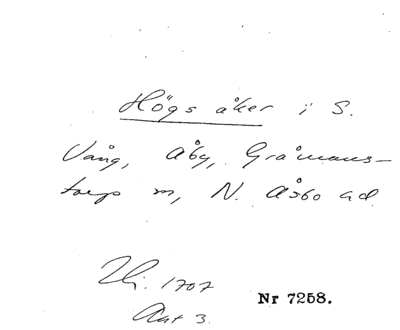 Högs åker i S.
Vång, Åby, Gråmans-
torps sn, N. Åsbo hd
1707
Akt 3.
Nr 7258.